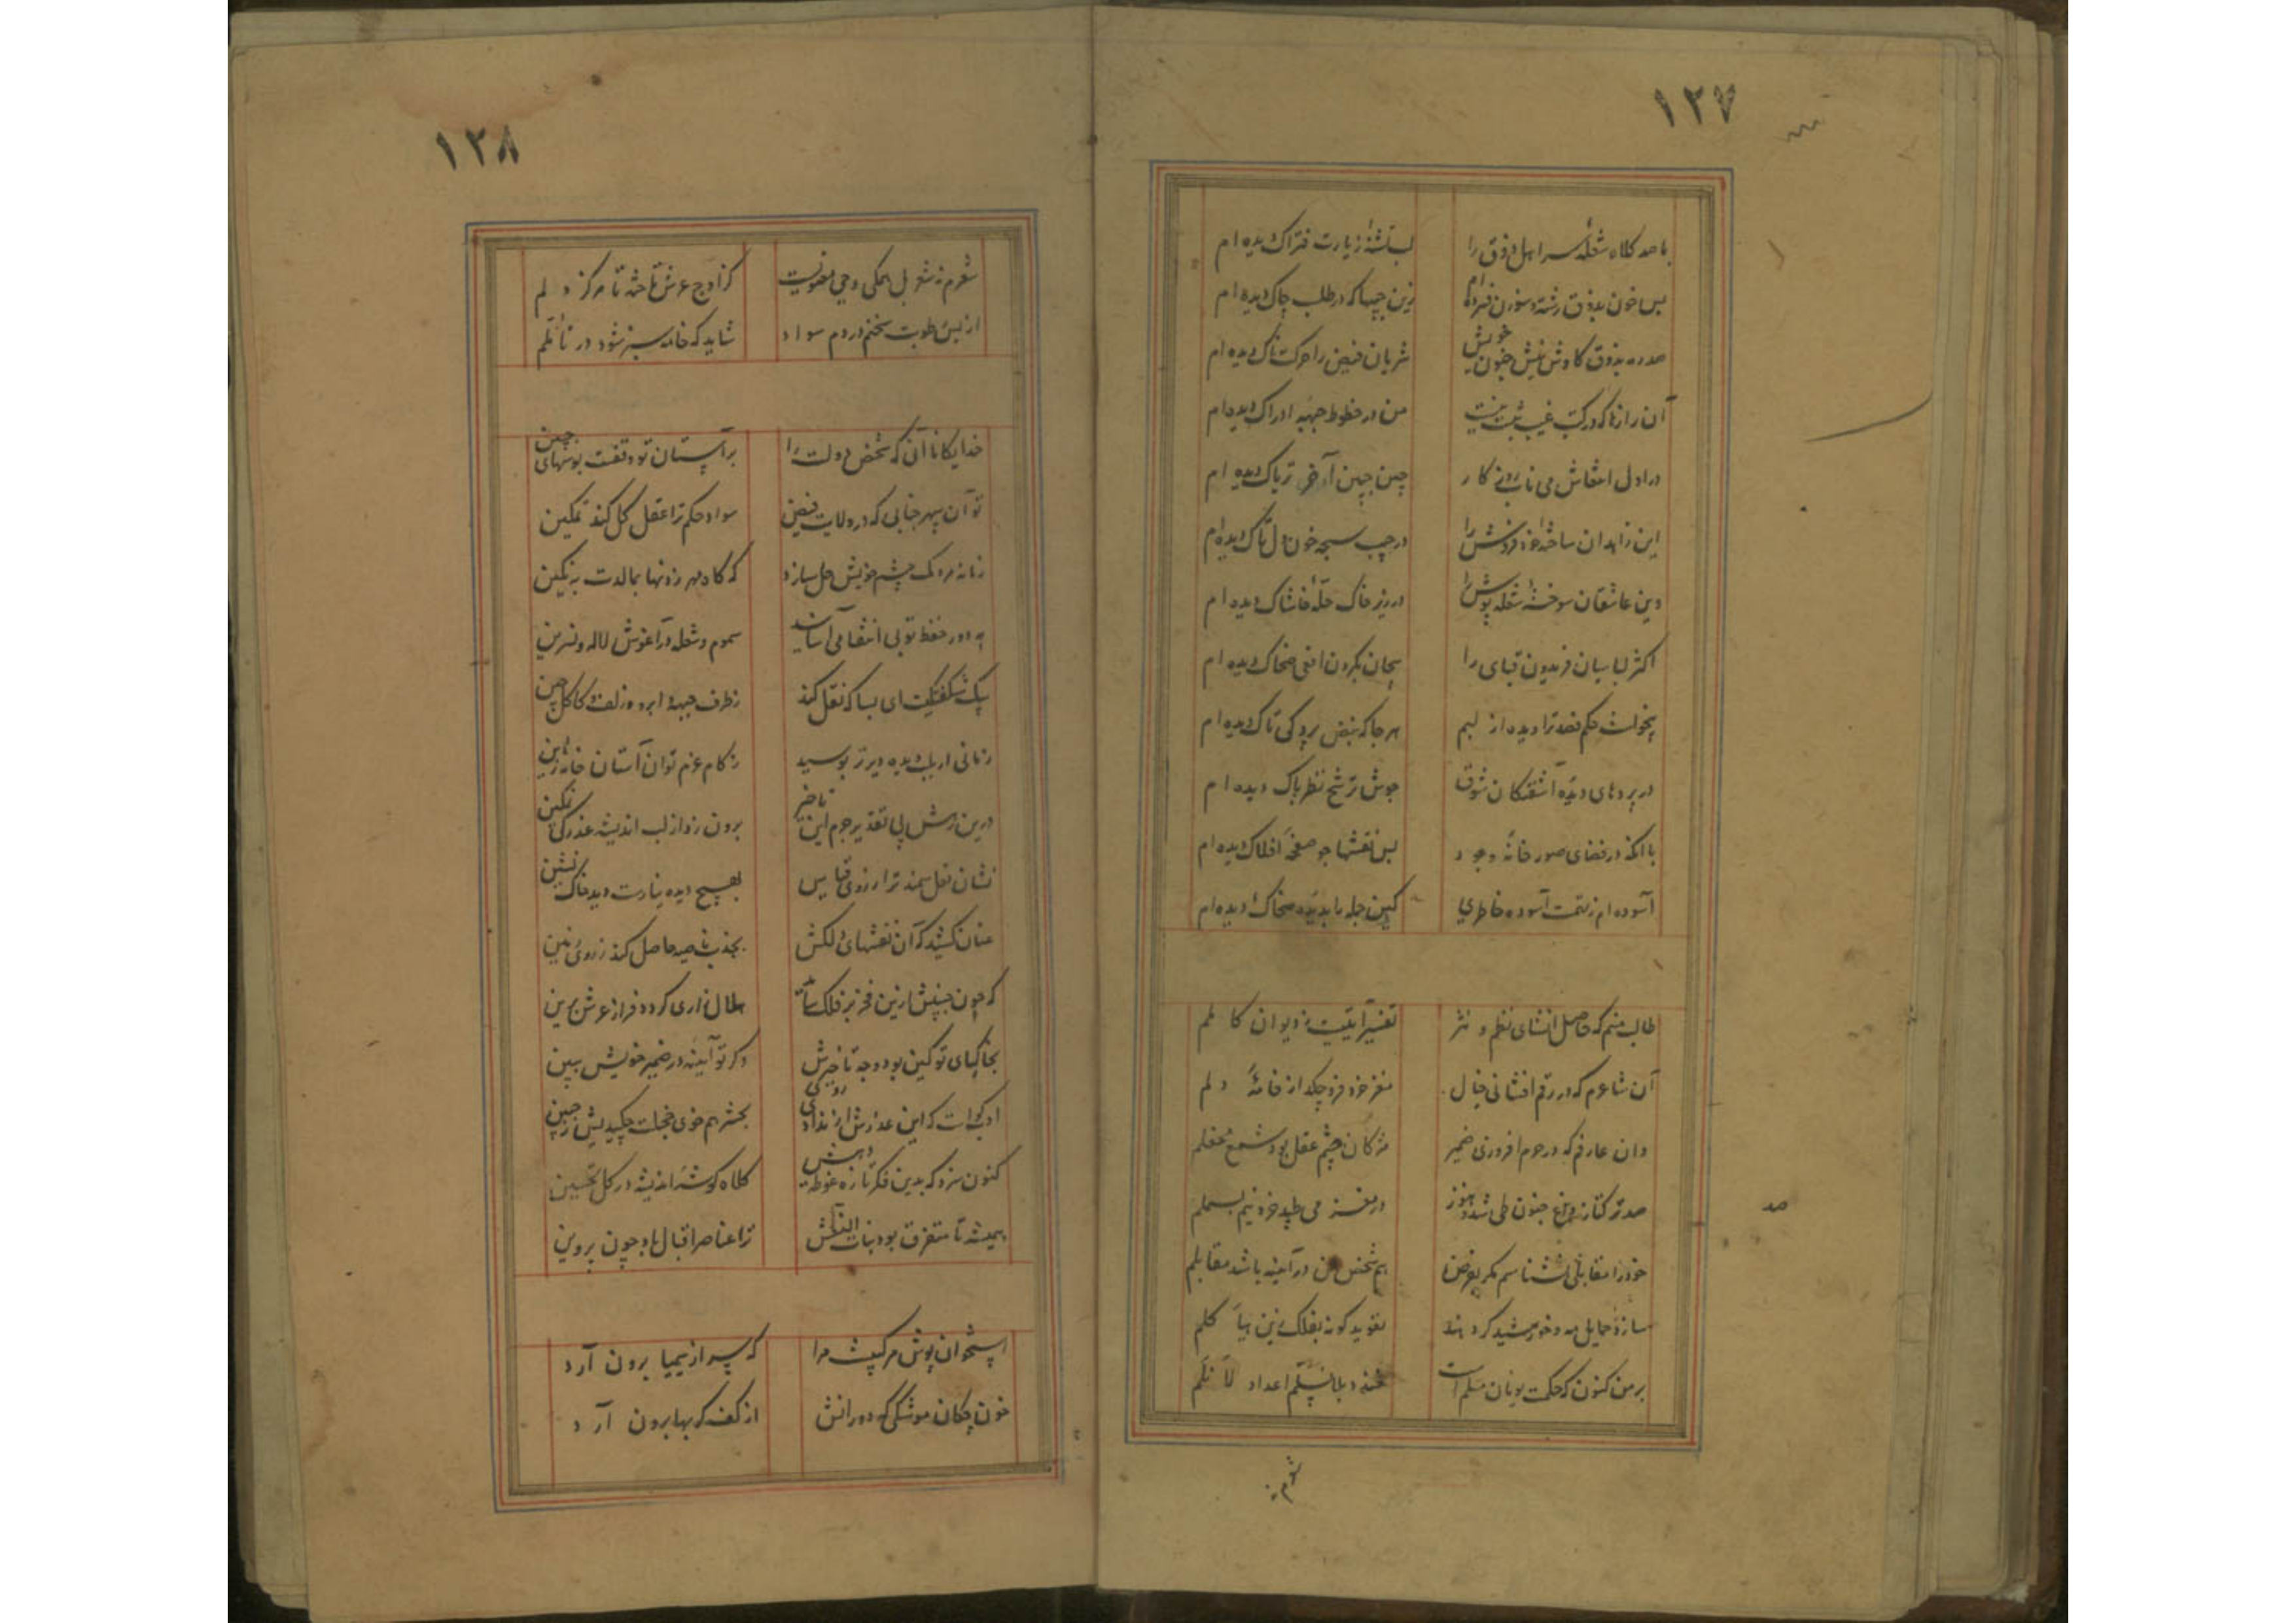 ۱۲۷
با صد کلاه شعله سر اهل ذوق را
لب تشنهٔ زیارت فتراک دیده ام
بس خون بذوق رشته و سوزن فسرده ام
زین جیبها که در طلب چاک دیده ام
صد ره بذوق کاوش نیش جنون خویش
شریان فیض را حرکت ناک دیده ام
آن رازها که در کتب غیب ثبت نیست
من در خطوط جبههٔ ادراک دیده ام
در اول انتعاش می ناب روی کار
چین جبین آخر تریاک دیده ام
این زاهدان ساخته خود فروش را
در جیب سبحه خون دل تاک دیده ام
وین عاشقان سوختهٔ شعله پوش را
در زیر خاک حلهٔ خاشاک دیده ام
اکثر لباسیان فریدون قبای را
پیچان بگردن افعی ضحاک دیده ام
بیخواست حکم قصد ترا دیده از لبم
هر جا که نبض رگ تاک دیده ام
در پردهای دیدهٔ آشفتکان شوق
جوش ترشح نظر پاک دیده ام
با آنکه در فضای صور خانهٔ وجود
بس نقشها چو صفحهٔ افلاک دیده ام
آسوده ام ز تهمت آسوده خاطری
کین جمله با بدیدهٔ ضحاک دیده ام
طالب منم که حاصل انشای نظم و نثر
تفسیر آیتیست ز دیوان کاملم
آن شاعرم که در رقم افشانی خیال
مغز خرد فرو چکد از خامهٔ دلم
وان عارفم که در حرم افروزی ضمیر
مژگان چشم عقل بود شمع محفلم
صد ترکتاز وادی جنون طی شد و هنوز
در مغز می طپد خرد نیم بسملم
خود را مقابلی نشناسم مگر بفرض
هم شخص من در آینه باشد مقابلم
سازد حمایل مه و خورشید گردنند
تعویذ گونه بفلک زین هیاکلم
بر من کنون که حکمت یونان مسلم است
شوم نه
۱۲۸
شعرم نه شعر بل همگی وحی معنویست
کز اوج عرش تاخته تا مرکز دلم
از بس رطوبت سخنم در دم سواد
شاید که خامه سبز شود در تأملم
خدایگانا آنی که شخص دولت را
بر آستان تو وقفست بوسهای جبین
تو آن سپهر جنابی که در ولایت فیض
سواد حکم ترا عقل کل کند تمکین
زمانه مردمک چشم خویش حل سازد
که گاه مهر زدنها بمالدت به نگین
به دور حفظ تو بی انتقام می آسایند
سموم و شعله در آغوش لاله و نسرین
پیک شکفتگیت ای بسا که نقل کند
ز طرف جبهه و ابرو و زلف و کاکل چین
زمانی ار بلب دیده دیرتر بوسید
ز کام عزم توان آستان خانه زین
درین روش پی تقدیر جرم این تاخیر
برون زد از لب اندیشه عذر رنگین
نشان نعل سمند ترا ز روی قیاس
بهیچ دیده نیارست دید خاک نشین
عنان کشید که آن نقشهای دلکش
بجذب ناصیه حاصل کند ز روی زمین
که چون جبینش ازین فخر بر فلک ساید
هلال زاری گردد فراز عرش برین
بخاکپای تو کین بود وجه تاخیرش
وگر تو آینه در ضمیر خویش ببین
ادب گواست که این عذرش از نداد روی
بحشر هم خوی خجلت چکیدیش ز جبین
کنون سزد که بدین فکر تازه غوطه دهیش
کلاه گوشهٔ اندیشه در گل تحسین
همیشه تا متفرق بود بنات النعش
ترا عناصر اقبال باد چون پروین
استخوان پوش مرکبیست مرا
که سر از سیمیا برون آرد
خون چکان موشکی که دورانش
از کف گربها برون آرد